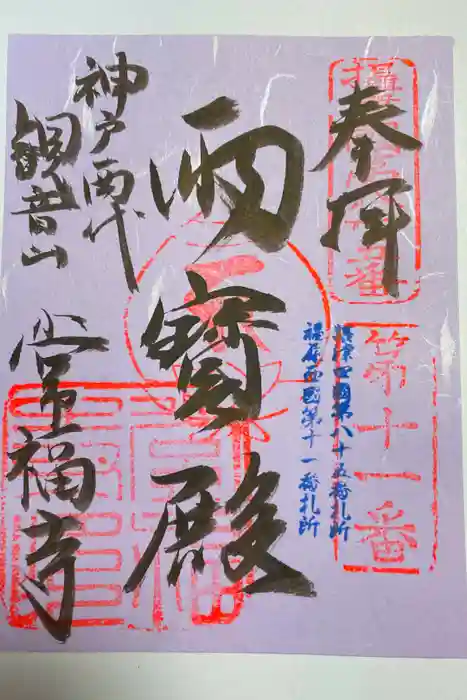 奉拝
第十一番
摂津四國第八十五番札所
福原西國第十一番札所
両寶殿
神戸要
観音山
常福寺